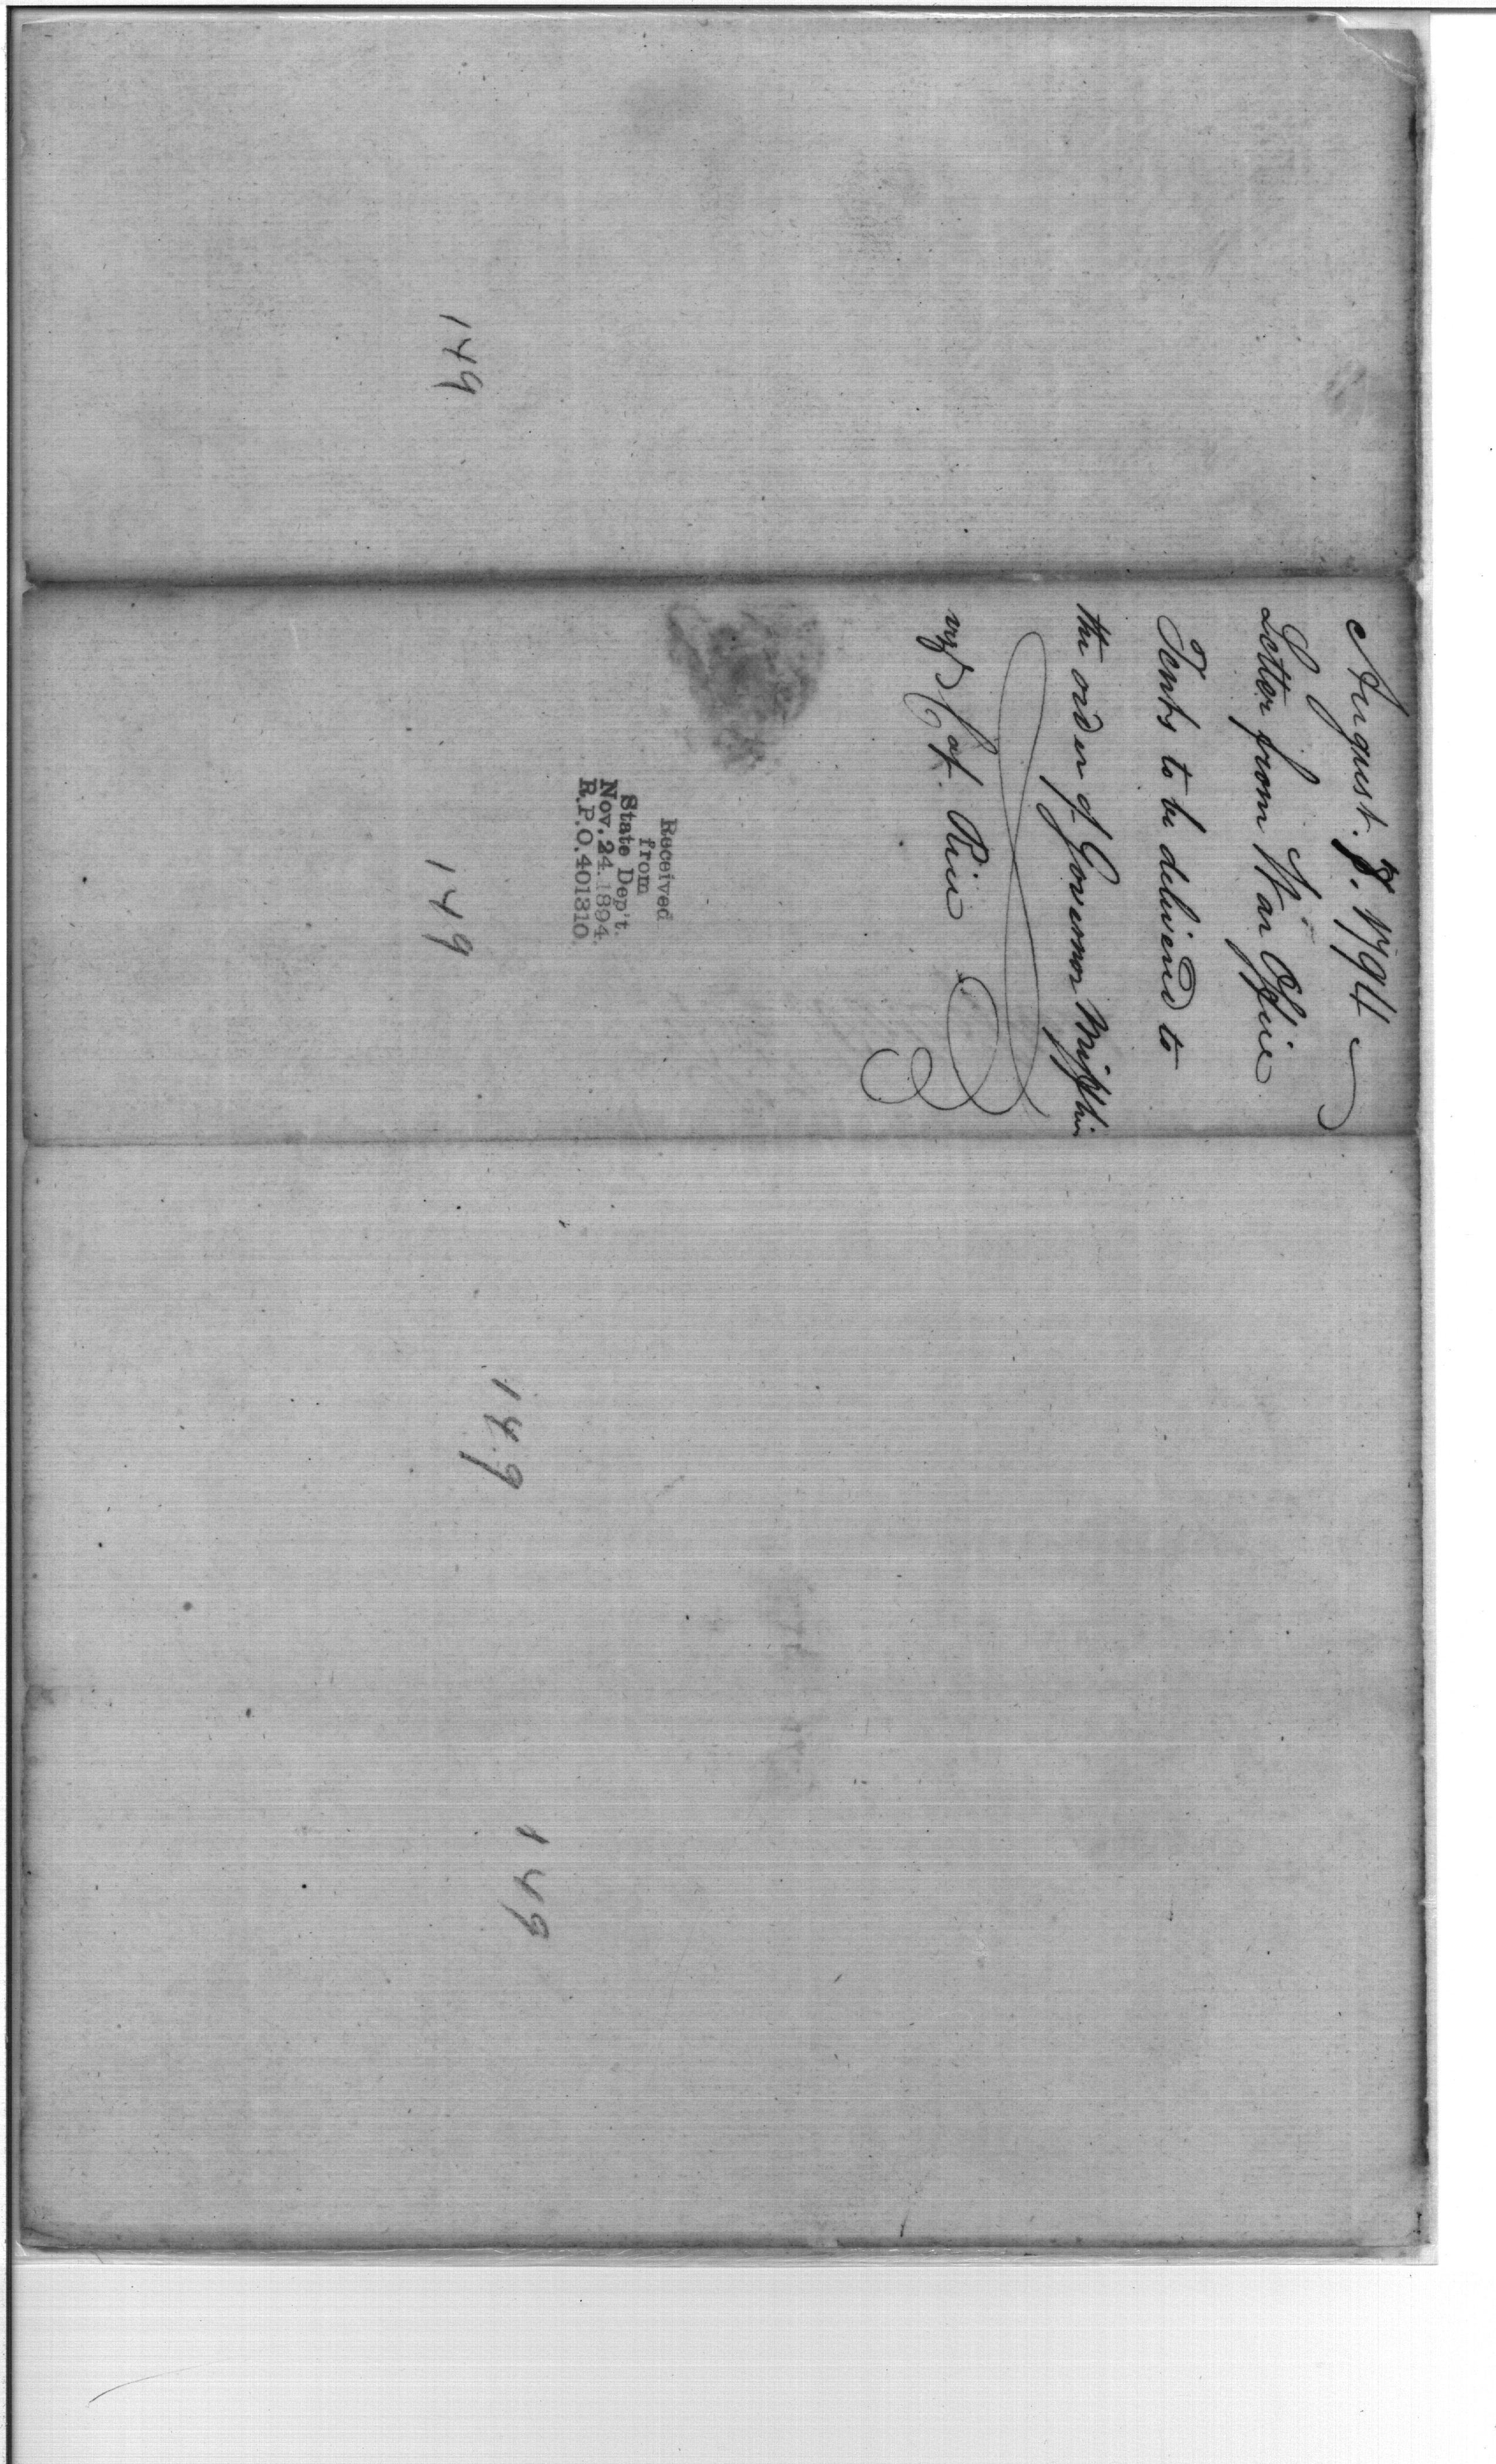 149
August. 7. 1794
Letter from War Office
Tents to be delivered to
the order of Governor Mifflin
vizt Cat. Rice
Received
from
State Dep't.
Nov. 24. 1894.
R.P.O. 401310.
149
149
149